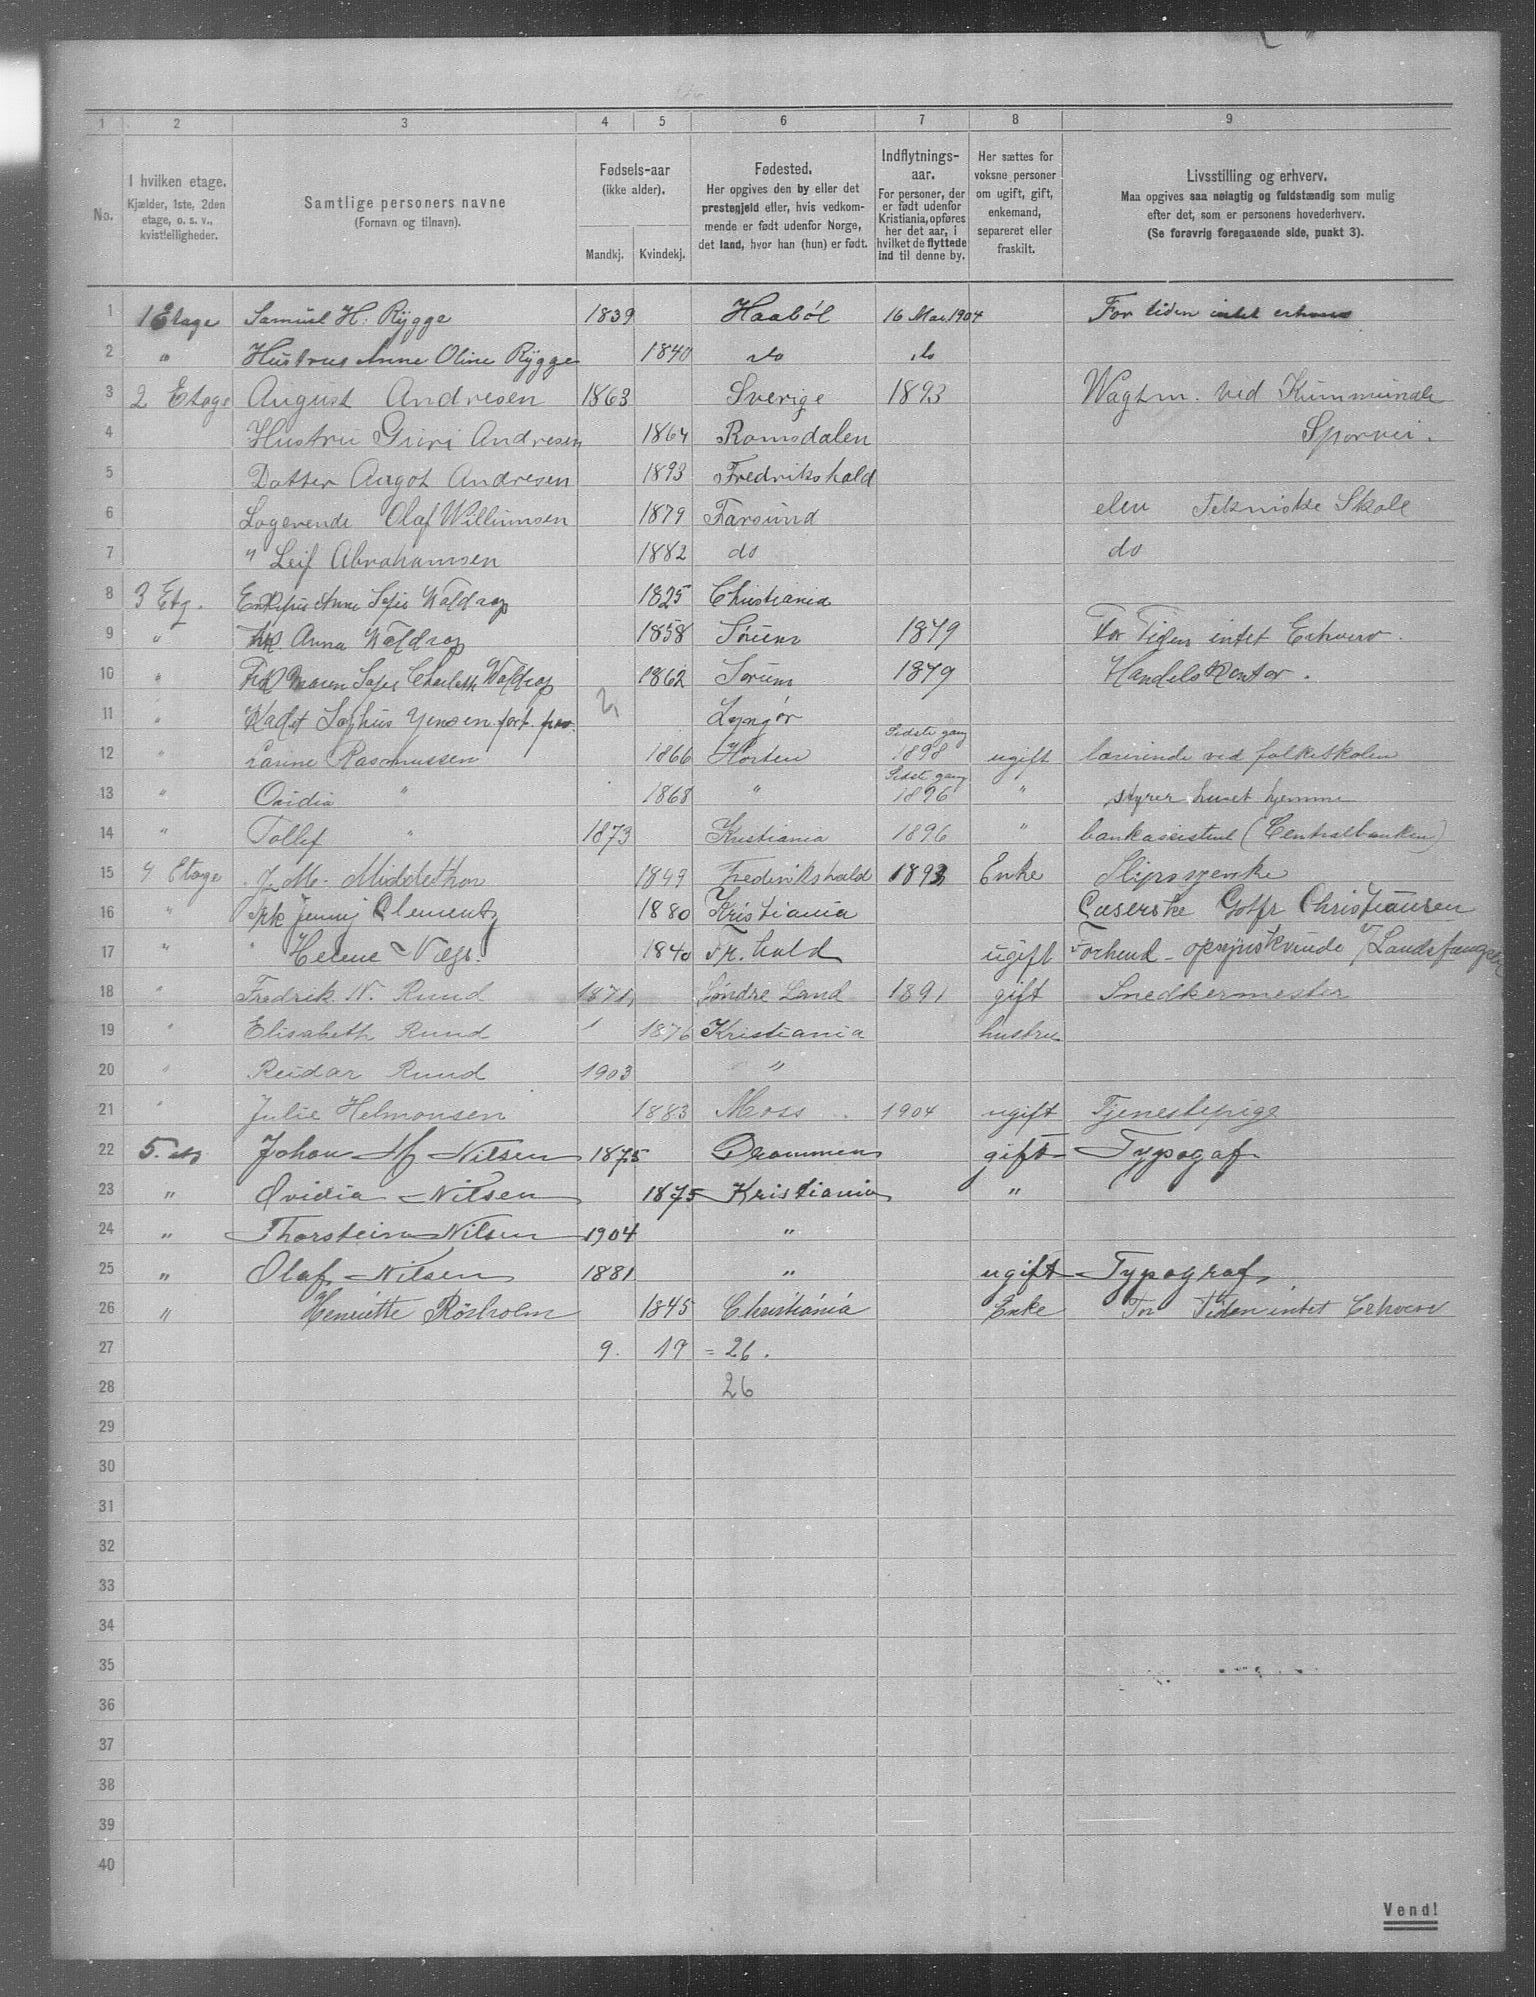 1 2 3 4 5 6 7 8 9
No.
I hvilken etage.
Kjælder, 1ste, 2den
etage, o. s. v.,
kvistleiligheder.
Samtlige personers navne
(Fornavn og tilnavn).
Fødsels-aar
(ikke alder).
Mandkj. Kvindekj.
Fødested.
Her opgives den by eller det
prestegjeld eller, hvis vedkom-
mende er født udenfor Norge,
det land, hvor han (hun) er født.
Indflytnings-
aar.
For personer, der
er født udenfor
Kristiania, opføres
her det aar, i
hvilket de flyttede
ind til denne by.
Her sættes for
voksne personer
om ugift, gift,
enkemand,
separeret eller
fraskilt.
Livsstilling og erhverv.
Maa opgives saa nøiagtig og fuldstændig som mulig
efter det, som er personens hovederhverv.
(Se forøvrig foregaaende side, punkt 3).
1 1 Etage Samuel H. Rygge 1839 Haabøl 16 Mai 1904 For tiden intet erhverv
2 " Hustrue Anne Oline Rygge 1840 do do
3 2 Etage August Andresen 1863 Sverige 1893 Wagtm. ved Kummunale
4 Hustru Guri Andresen 1864 Romsdalen Sporvei.
5 Datter Aagot Andresen 1893 Fredrikshald
6 Logerende Olaf Willumsen 1879 Farsund elev Tekniske Skole
7 " Leif Abrahamsen 1882 do do
8 3 Etg. Enkefru Anne Sofie Waldrop 1825 Christiania
9 " Frk. Anna Waldrop 1858 Sørum 1879 For Tiden intet Erhverv.
10 " Frk Maren Sofie Charlotte Waldrop 1862 Sørum 1879 Handelskontor.
11 " Kadet Sophus Jensen fort. fra. Lyngør
12 " Larine Rasmussen 1866 Horten Sidste gang 1898 ugift lærerinde ved folkeskolen
13 " Ovidia " 1868 " Sidste gang 1896 " styrer huset hjemme
14 " Tollef " 1873 Kristiania 1896 " bankassistent (Centralbanken)
15 4 Etage J. M. Middelthon 1849 Frederikshald 1893 Enke Slipssyerske
16 " Frk Jenny Clementz 1880 Kristiania Casserske Gotfr Christiansen
17 " " Helene 1840 Fr. hald ugift Forhend. opsynskvinde v/ Landsfængslet
18 " Fredrik N. Ruud 1871 Søndre Land 1891 gift Snedkermester
19 " Elisabeth Ruud 1876 Kristiania hustru
20 " Reidar Ruud 1903 "
21 " Julie Helmonsen 1883 Moss. 1904 ugift Tjenestepige
22 5. etg Johan M Nilsen 1875 Drammen gift Typogaf
23 " Ovidia Nilsen 1875 Kristiania "
24 " Thorstein Nilsen 1904 "
25 " Olaf Nilsen 1881 " ugift Typograf
26 " Henriette Rösholm 1845 Christiania Enke For Tiden intet Erhverv
27 9. 17 = 26.
28 26
29
30
31
32
33
34
35
36
37
38
39
40
Vend!